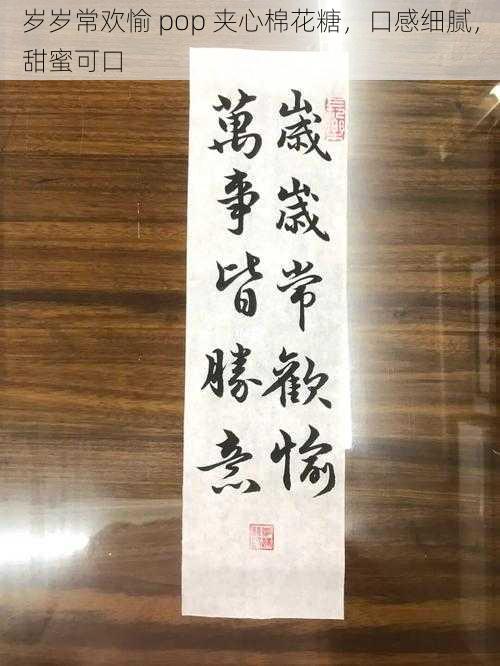 岁岁常欢愉 pop 夹心棉花糖，口感细腻，
甜蜜可口
歳歳常歡愉
萬事皆勝意